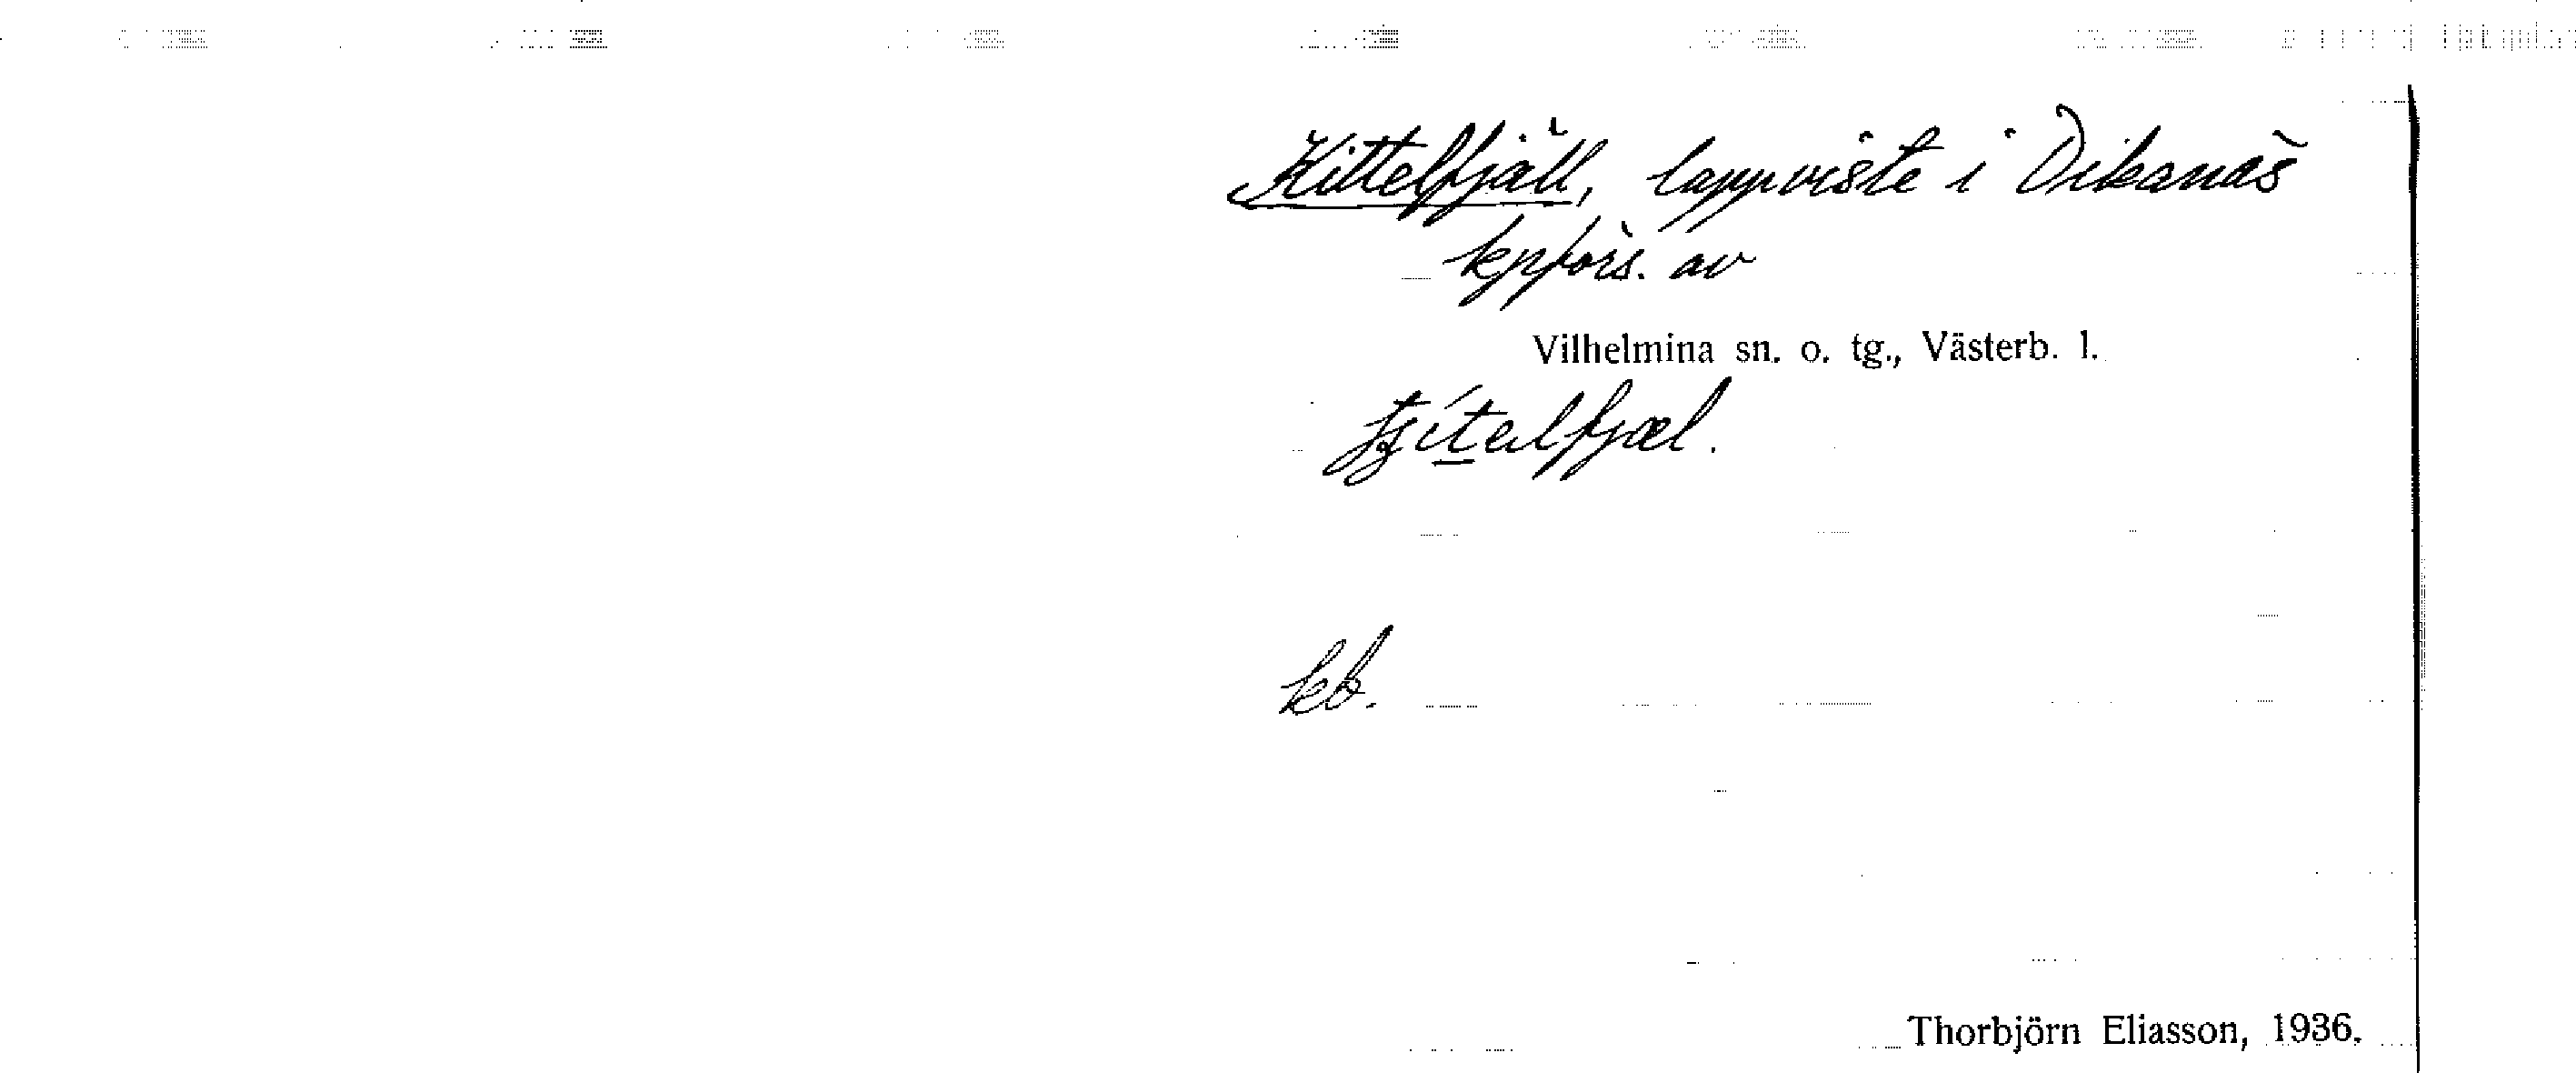 Kittelfjäll, lappviste i Dikanäs
kpförs. av
Vilhelmina sn. o. tg., Västerb. l.
kb.
Thorbjörn Eliasson, 1936.